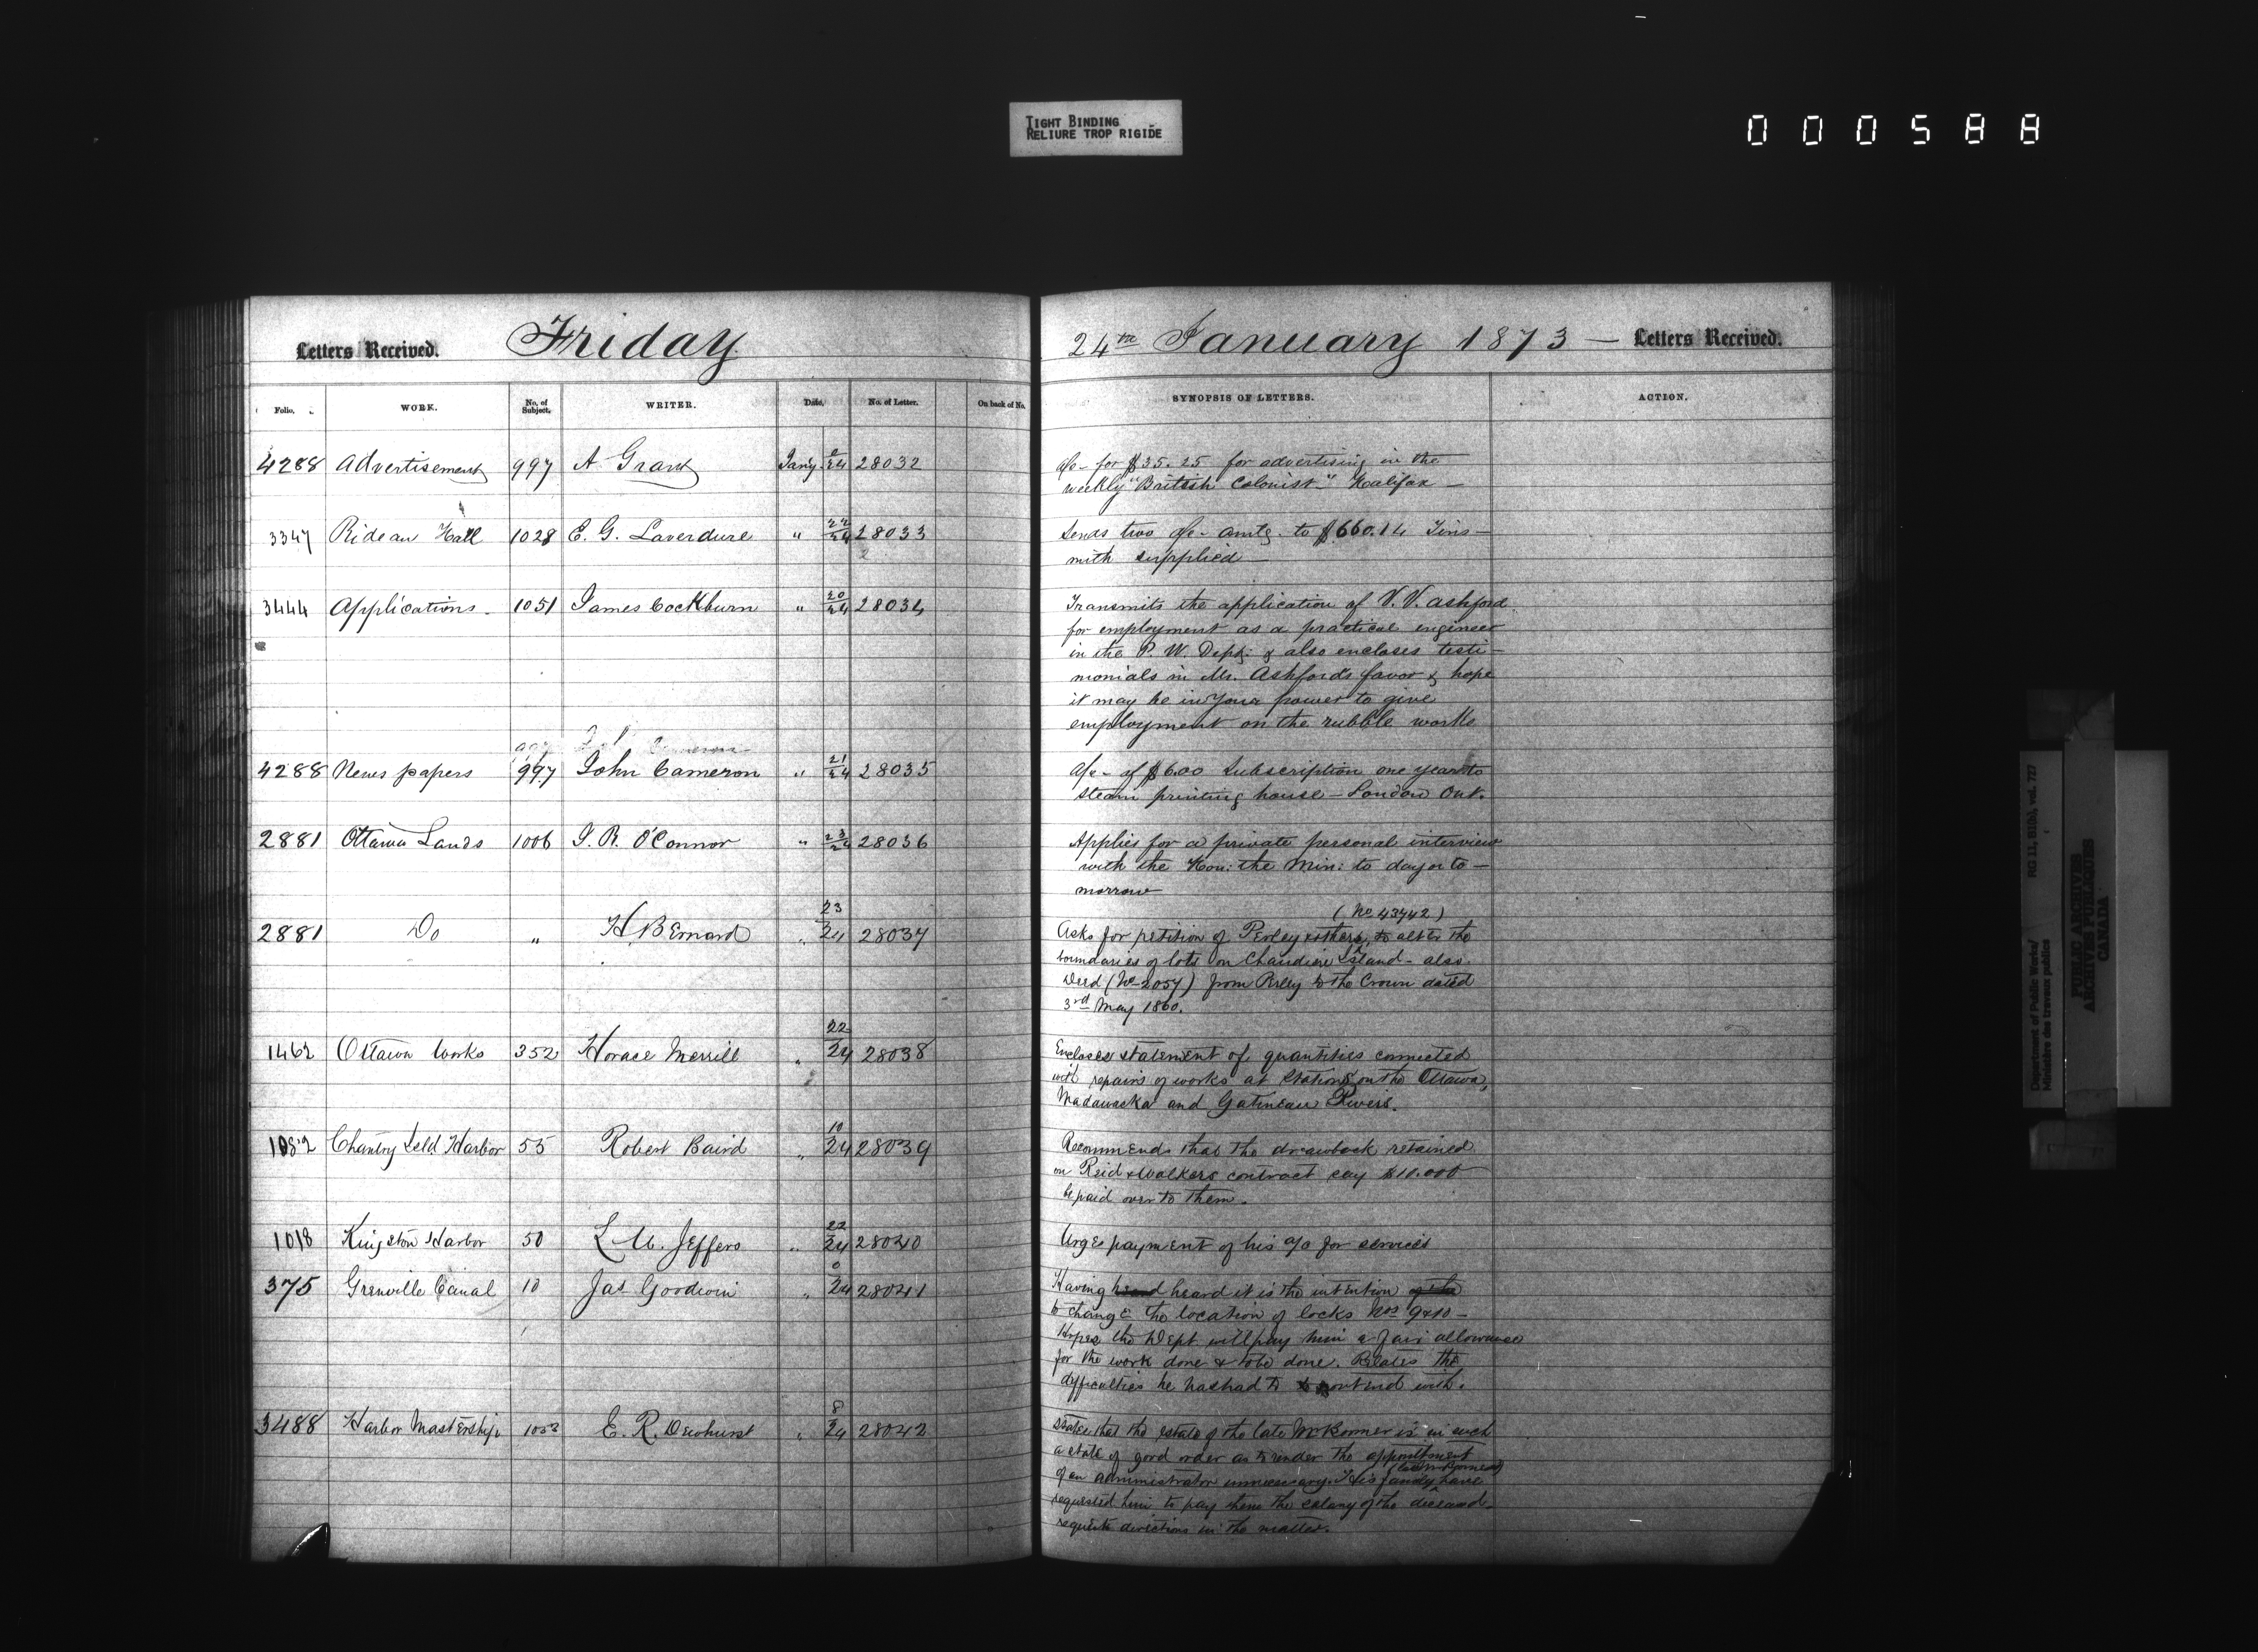 TIGHT BINDING
RELIURE TROP RIGIDE
000588
Letters Received. Friday
24th January 1873 — Letters Received.
Folio. WORK. No. of Subject. WRITER. Date. No. of Letter. On back of No.
SYNOPSIS OF LETTERS. ACTION.
4288 Advertisement 997 A Grant Jany. 0/24 28032
a/c - for $35.25 for advertising in the
weekly "British Colonist" Halifax —
3347 Rideau Hall 1028 E. G. Laverdure " 22/24 28033
2
Sends two a/c - amtg. to $660.14 Tins-
mith supplied —
3444 Applications - 1051 James Cockburn " 20/24 28034
Transmits the application of V. V. Ashford
for employment as a practical engineer
in the P. W. Dept: & also encloses testi-
monials in Mr. Ashford's favor & hope
it may be in your power to give
employment on the rubble works
4288 News papers 997 John Cameron " 21/24 28035
a/c - of $6.00 Subscription one year to
steam printing house - London Ont.
2881 Ottawa Lands 1006 J. R. O'Connor " 23/24 28036
Applies for a private personal interview
with the Hon: the Min: to day or to-
morrow
2881 Do " H. Bernard " 23/24 28037
(No 43742)
Asks for petition of Perley & others, to alter the
boundaries of lots on Chaudiere Island - also.
Deed (No 2057) from Perley to the Crown dated
3rd May 1860.
1462 Ottawa Works 352 Horace Merrill " 22/24 28038
Encloses statement of quantities connected
with repairs of works at Stations on the Ottawa,
Madawacka and Gatineau Rivers.
1082 Chantry Isld Harbor 55 Robert Baird " 10/24 28039
Recommends that the drawback retained
on Reid & Walkers contract say $10.000
be paid over to them.
1018 Kingston Harbor 50 L. M. Jeffers " 22/24 28040
Urges payment of his a/c for services
375 Grenville Canal 10 Jas Goodwin " 0/24 28041
Having heard it is the intention of the
to change the location of locks Nos 9 & 10 -
Hopes the Dept will pay him a fair allowance
for the work done & to be done. Relates the
difficulties he has had to contend with.
3488 Harbor Mastership 1053 E. R. Dewhurst " 8/24 28042
States that the estate of the late is in such
a state of good order as to render the appointment
of an administrator unnecessary. His family have
requested him to pay them the salary of the deceased -
requests directions in the matter.
Department of Public Works/ RG 11, B1(b), vol. 727
Ministère des travaux publics
PUBLIC ARCHIVES
ARCHIVES PUBLIQUES
CANADA